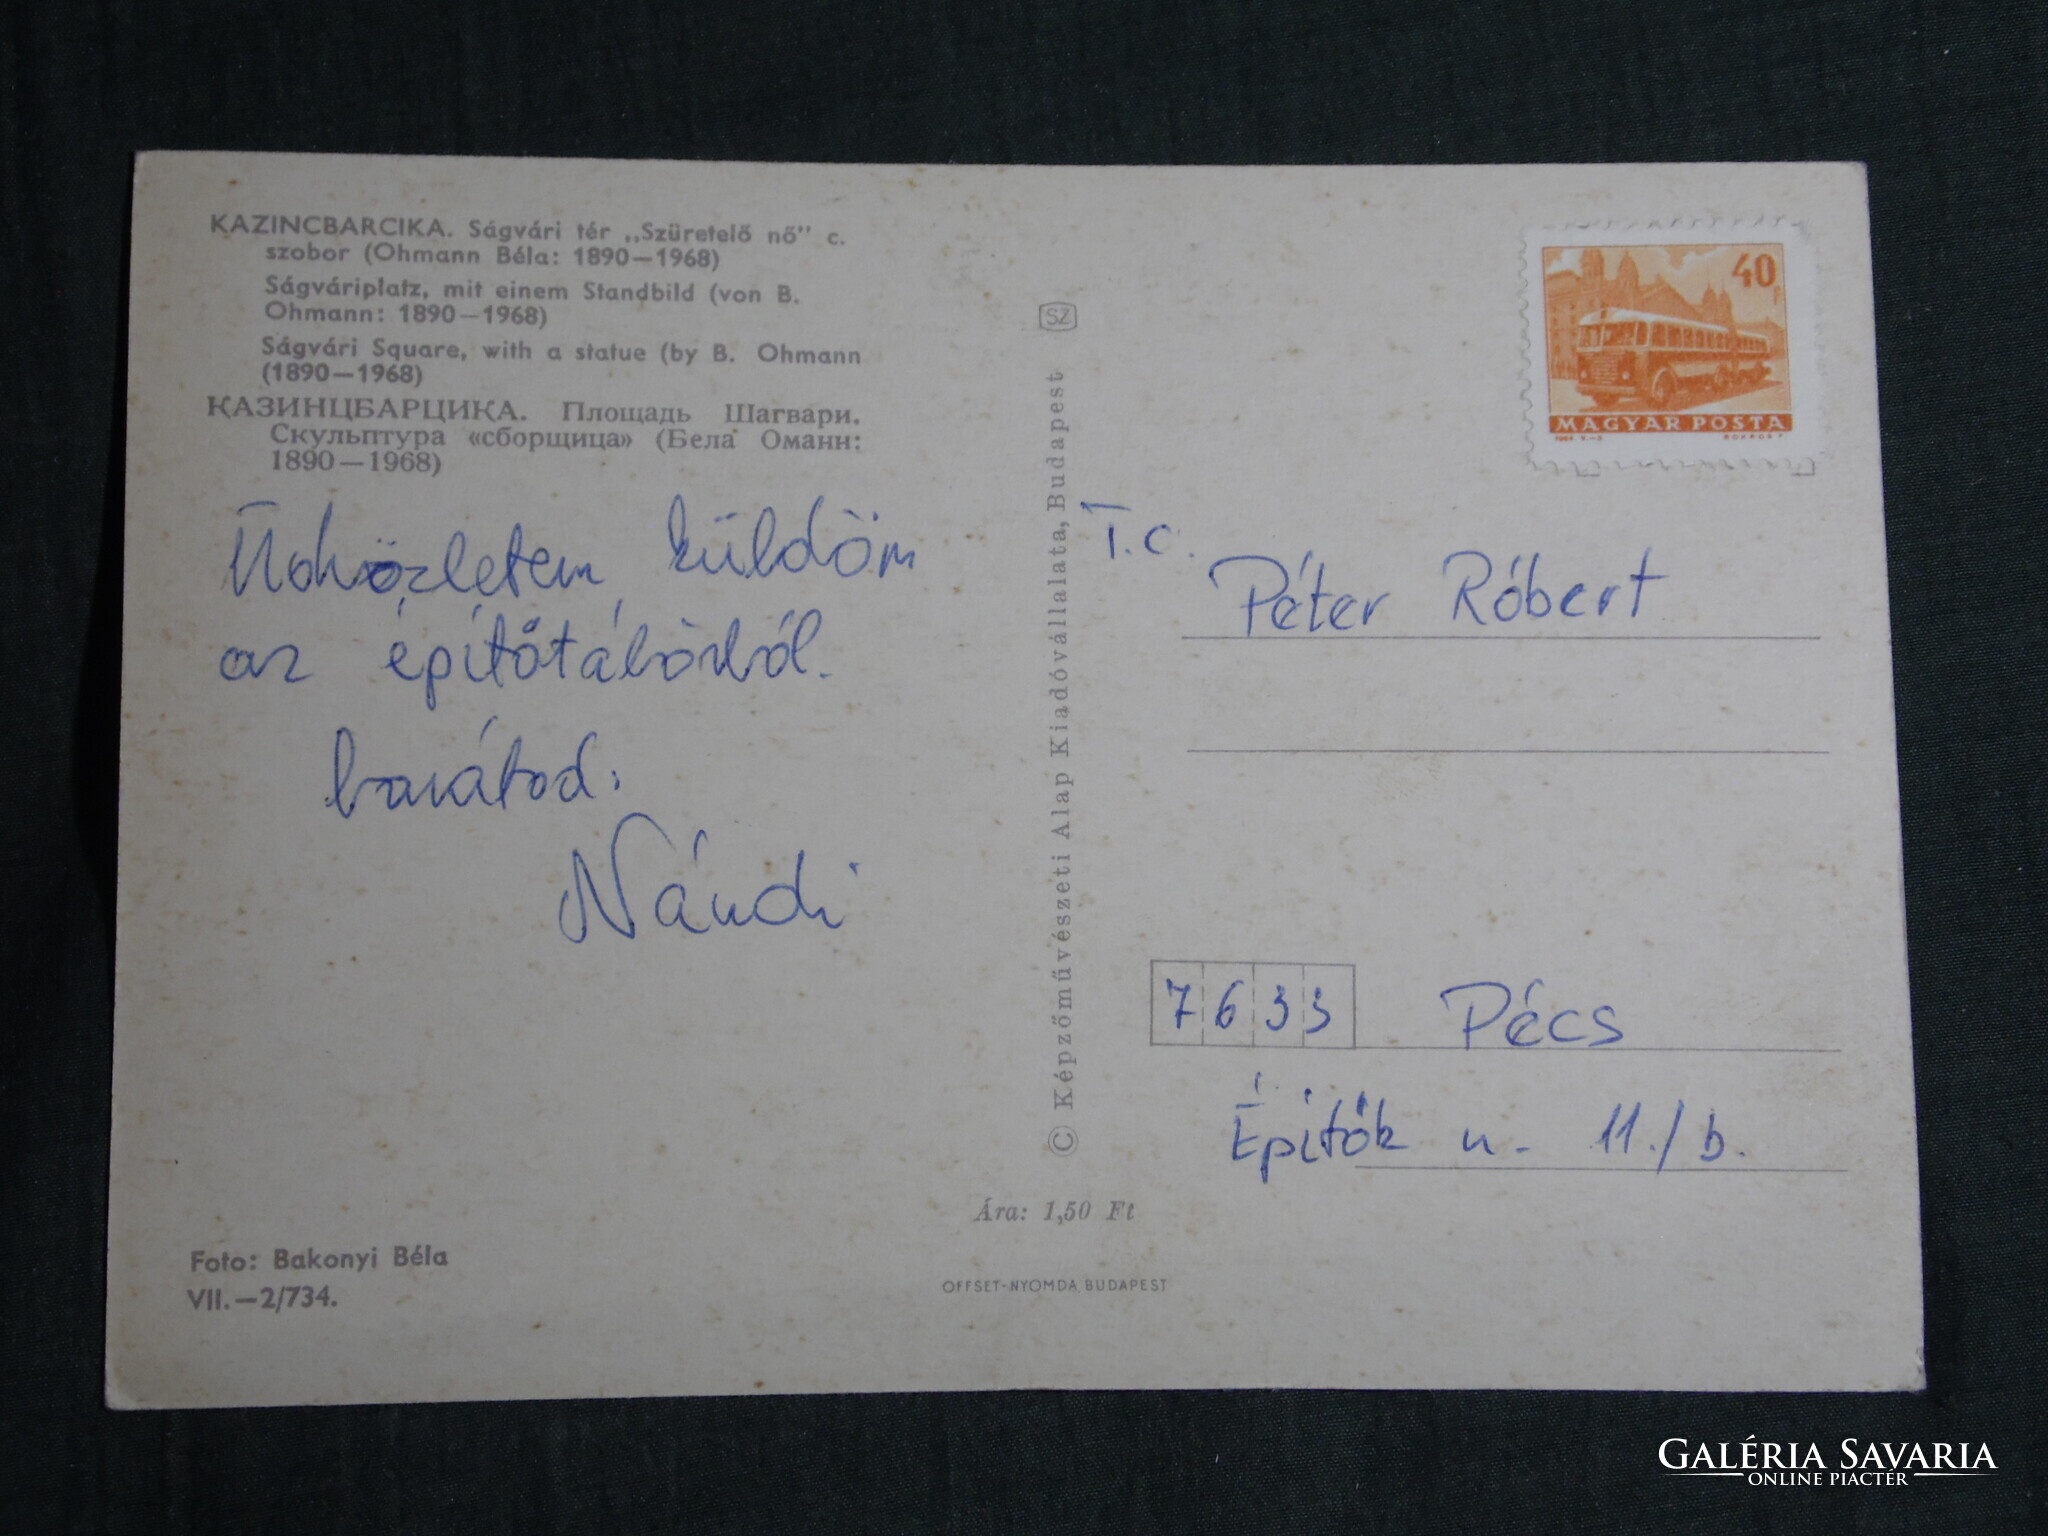 KAZINCBARCIKA. Ságvári tér „Szüretelő nő" c.
szobor (Ohmann Béla: 1890—1968)
Ságváriplatz, mit einem Standbild (von B.
Ohmann: 1890—1968)
Ságvári Square, with a statue (by B. Ohmann
(1890—1968)
КАЗИНЦБАРЦИКА. Площадь Шагвари.
Скульптура «сборщица» (Бела Оманн:
1890—1968)
Üdvözletem küldöm
az építőtáborból.
barátod:
Nándi
Foto: Bakonyi Béla
VII.—2/734.
SZ
© Képzőművészeti Alap Kiadóvállalata, Budapest
Ára: 1,50 Ft
OFFSET-NYOMDA, BUDAPEST
40f
MAGYAR POSTA
T.c.
Péter Róbert
7633 Pécs
Építők u. 11./b.
GALÉRIA SAVARIA
ONLINE PIACTÉR